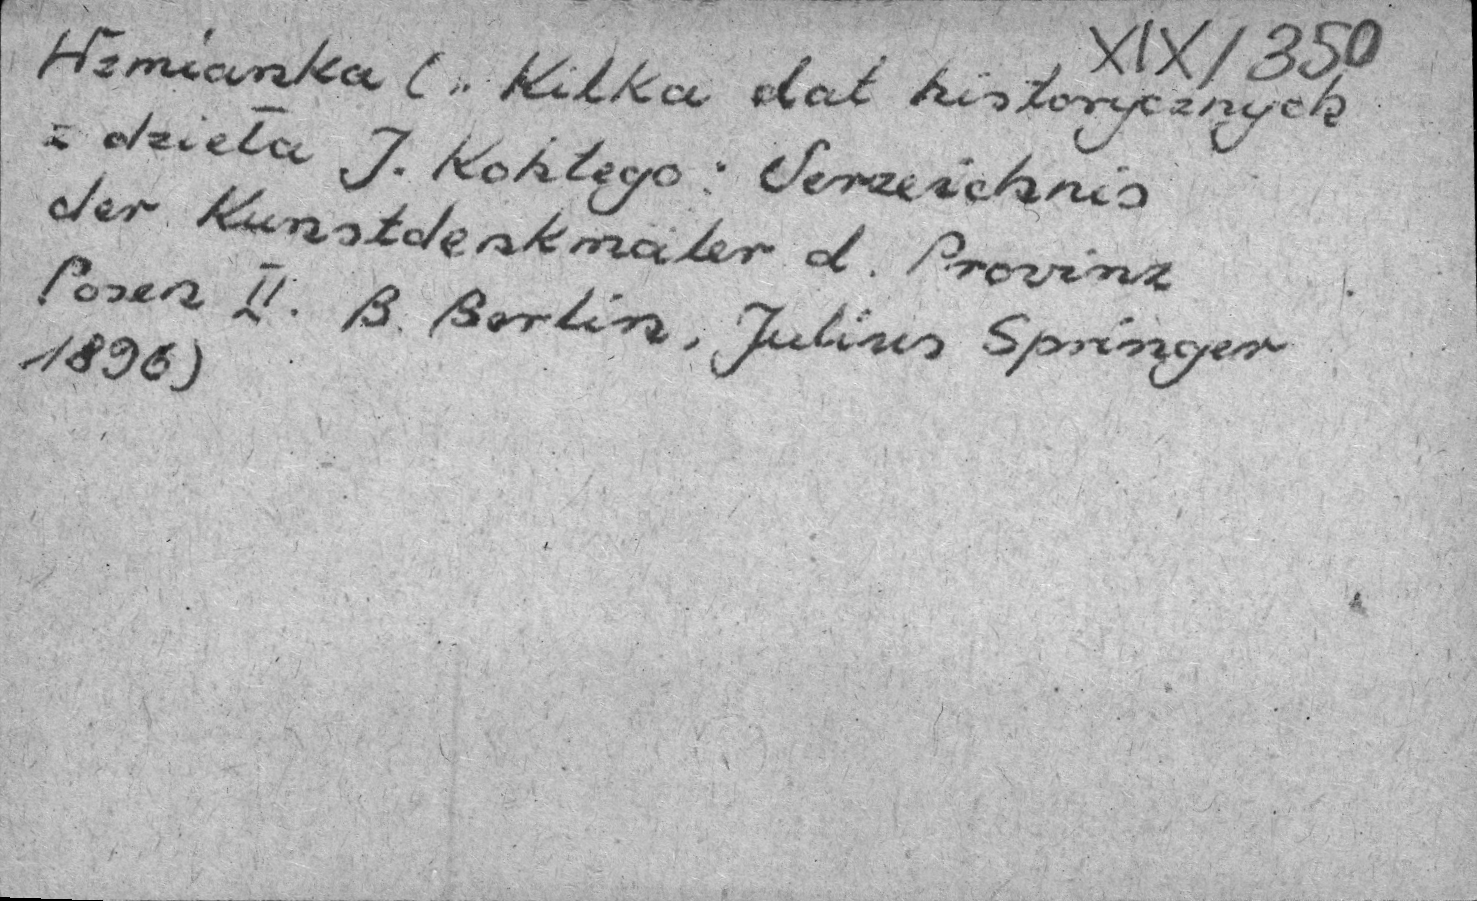 XIX/350
Wzmianka („Kilka dat historycznych
z dzieła J. Kohtego: Verzeichnis
der Kunstdenkmäler d. Provinz
Posen II. B. Berlin, Julius Springer
1896)